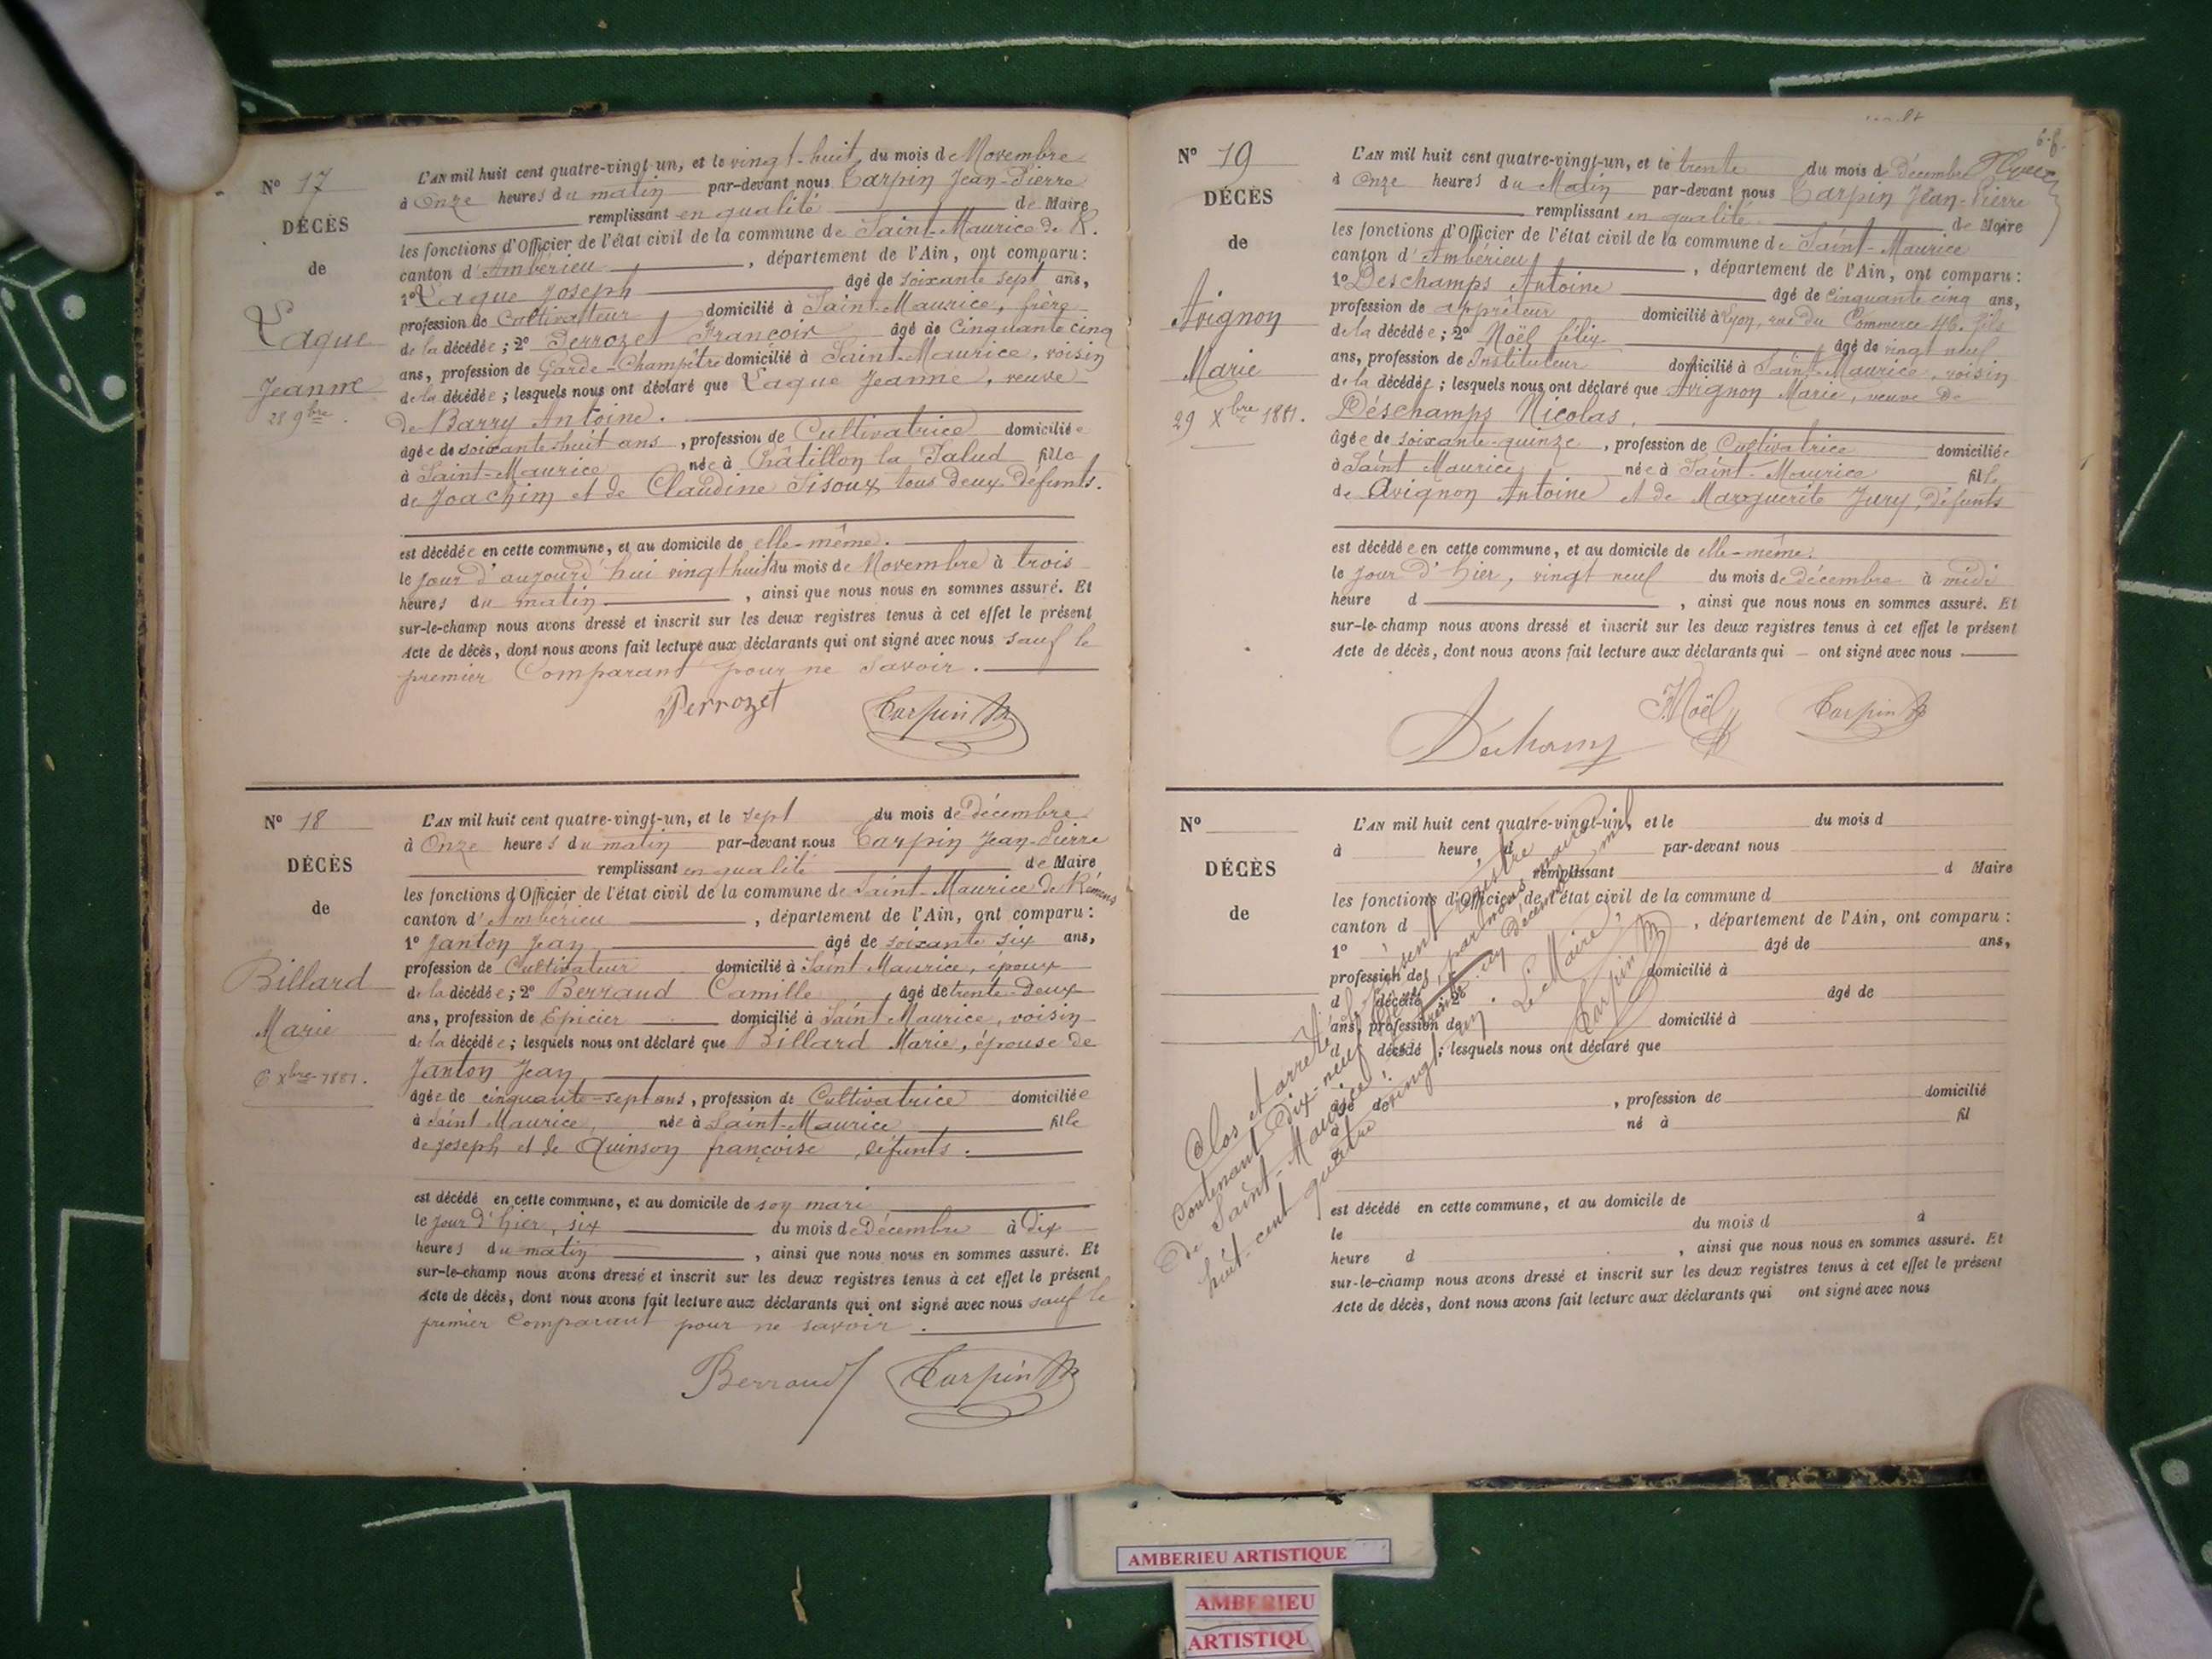 N° 17
DÉCÈS
de
Laque
Jeanne
28 9bre.
L'AN mil huit cent quatre-vingt-un, et le vingt-huit du mois de Novembre
à Onze heures du matin par-devant nous Carpin Jean-Pierre
remplissant en qualité de Maire
les fonctions d'Officier de l'état civil de la commune de Saint-Maurice de R.
canton d'Ambérieu, département de l'Ain, ont comparu:
1° Laque Joseph âgé de soixante sept ans,
profession de Cultivateur domicilié à Saint-Maurice, frère
de la décédée; 2° Perrozet François âgé de Cinquante cinq
ans, profession de Garde-Champêtre domicilié à Saint-Maurice, voisin
de la décédée; lesquels nous ont déclaré que Laque Jeanne, veuve
de Barry Antoine.
âgée de soixante huit ans, profession de Cultivatrice domiciliée
à Saint-Maurice née à Châtillon la Palud fille
de Joachim et de Claudine Sisoux tous deux défunts.
est décédée en cette commune, et au domicile de elle-même.
le jour d'aujourd'hui vingt huit du mois de Novembre à trois
heures du matin, ainsi que nous nous en sommes assuré. Et
sur-le-champ nous avons dressé et inscrit sur les deux registres tenus à cet effet le présent
Acte de décès, dont nous avons fait lecture aux déclarants qui ont signé avec nous sauf le
premier Comparant pour ne savoir.
Perrozet Carpin
N° 18
DÉCÈS
de
Billard
Marie
6 Xbre 1881.
L'AN mil huit cent quatre-vingt-un, et le sept du mois de Décembre
à Onze heures du matin par-devant nous Carpin Jean-Pierre
remplissant en qualité de Maire
les fonctions d'Officier de l'état civil de la commune de Saint-Maurice de Rémens
canton d'Ambérieu, département de l'Ain, ont comparu:
1° Janton Jean âgé de soixante six ans,
profession de Cultivateur domicilié à Saint Maurice, époux
de la décédée; 2° Berraud Camille âgé de trente-deux
ans, profession de Epicier domicilié à Saint Maurice, voisin
de la décédée; lesquels nous ont déclaré que Billard Marie, épouse de
Janton Jean
âgée de cinquante-sept ans, profession de Cultivatrice domiciliée
à Saint Maurice, née à Saint-Maurice fille
de Joseph et de Quinson françoise, défunts.
est décédé en cette commune, et au domicile de son mari
le jour d'hier, six du mois de Décembre à dix
heures du matin, ainsi que nous nous en sommes assuré. Et
sur-le-champ nous avons dressé et inscrit sur les deux registres tenus à cet effet le présent
Acte de décès, dont nous avons fait lecture aux déclarants qui ont signé avec nous sauf le
premier Comparant pour ne savoir.
Berraud Carpin
N° 19
DÉCÈS
de
Avignon
Marie
29 Xbre 1881.
L'AN mil huit cent quatre-vingt-un, et le trente du mois d Décembre
à Onze heures du Matin par-devant nous Carpin Jean-Pierre
remplissant en qualité de Maire
les fonctions d'Officier de l'état civil de la commune de Saint-Maurice
canton d'Ambérieu, département de l'Ain, ont comparu:
1° Deschamps Antoine âgé de cinquante cinq ans,
profession de apprêteur domicilié à Lyon, rue du Commerce 46. fils
de la décédée; 2° Noël félix âgé de vingt neuf
ans, profession de Instituteur domicilié à Saint-Maurice, voisin
de la décédée; lesquels nous ont déclaré que Avignon Marie, veuve de
Déschamps Nicolas.
âgée de soixante-quinze, profession de Cultivatrice domiciliée
à Saint Maurice née à Saint-Maurice fille
de Avignon Antoine et de Marguerite Jury, défunts
est décédée en cette commune, et au domicile de elle-même.
le jour d'hier, vingt neuf du mois de décembre à midi
heure d, ainsi que nous nous en sommes assuré. Et
sur-le-champ nous avons dressé et inscrit sur les deux registres tenus à cet effet le présent
Acte de décès, dont nous avons fait lecture aux déclarants qui — ont signé avec nous
Noël Carpin
N°
DÉCÈS
de
L'AN mil huit cent quatre-vingt-un, et le du mois d
à heure d par-devant nous
remplissant d Maire
les fonctions d'Officier de l'état civil de la commune d
canton d, département de l'Ain, ont comparu:
1° âgé de ans,
profession de domicilié à
d décédé; 2° âgé de
ans, profession de domicilié à
d décédé; lesquels nous ont déclaré que
âgé de, profession de domicilié
à né à fil
est décédé en cette commune, et au domicile de
le du mois d à
heure d, ainsi que nous nous en sommes assuré. Et
sur-le-champ nous avons dressé et inscrit sur les deux registres tenus à cet effet le présent
Acte de décès, dont nous avons fait lecture aux déclarants qui ont signé avec nous
Clos et arrêté le présent registre
contenant dix-neuf par nous maire
de Saint-Maurice, décembre mil
huit-cent quatre vingt un. Le Maire,
Carpin
AMBERIEU ARTISTIQUE
AMBERIEU
ARTISTIQU